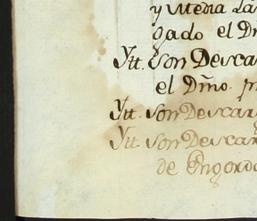 y Media La
gado el D
Ytt. Son Desca
el Dño. p
Ytt. Son Descar
Ytt. Son Descar
de Engord